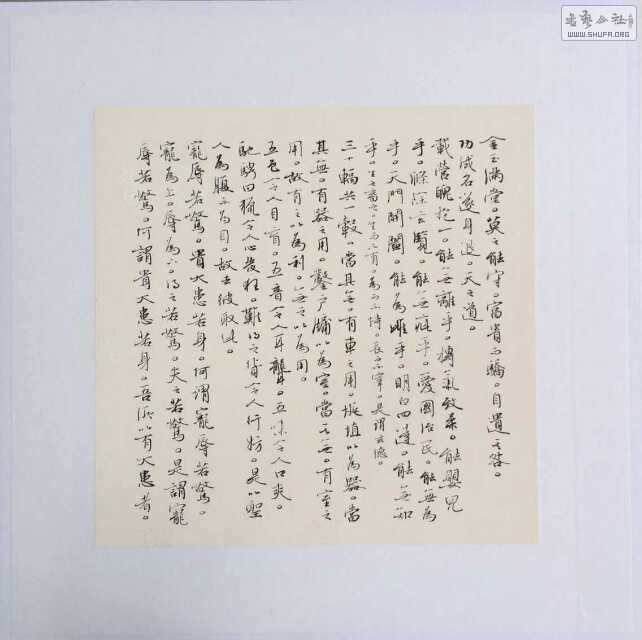 金玉滿堂。莫之能守。富貴而驕。自遺其咎。
功成名遂身退。天之道。
載營魄抱一。能無離乎。摶氣致柔。能嬰兒
乎。滌除玄覽。能無疵乎。愛國治民。能無為
乎。天門開闔。能為雌乎。明白四達。能無知
乎。生之畜之。生而不有。為而不恃。長而不宰。是謂玄德。
三十輻共一轂。當其無。有車之用。埏埴以為器。當
其無。有器之用。鑿戶牖以為室。當其無。有室之
用。故有之以為利。無之以為用。
五色令人目盲。五音令人耳聾。五味令人口爽。
馳騁田獵令人心發狂。難得之貨令人行妨。是以聖
人為腹不為目。故去彼取此。
寵辱若驚。貴大患若身。何謂寵辱若驚。
寵為上。辱為下。得之若驚。失之若驚。是謂寵
辱若驚。何謂貴大患若身。吾所以有大患者。
WWW.SHUFA.ORG